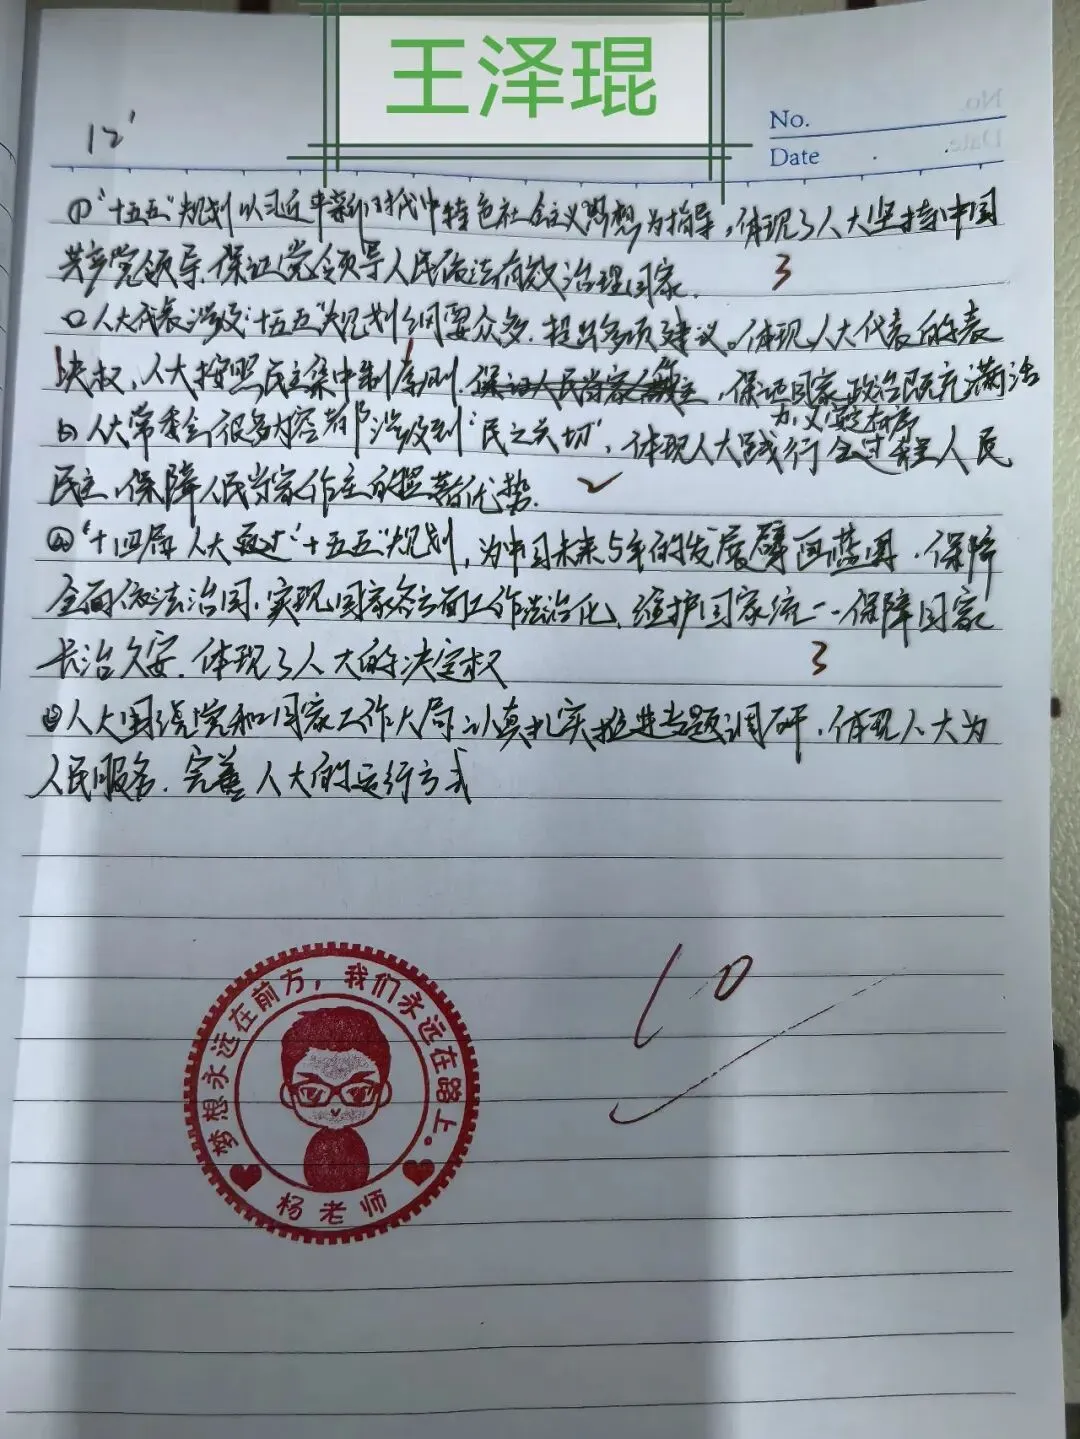 王泽琨
No.
Date
12'
①"十五五"规划以习近平新时代中特色社会主义思想为指导,体现了人大坚持中国
共产党领导,保证党领导人民依法有效治理国家.
3
②人大代表涉及"十五五"规划纲要众多,提出多项建议。体现人大代表的表
决权,人大按照民主集中制原则,保证国家政治既充满活
力,又安定有序
③人大常委会很多内容都涉及到"民之关切",体现人大践行全过程人民
民主,保障人民当家作主的显著优势.
④"十四届人大通过"十五五"规划,为中国未来5年的发展擘画蓝图,保障
全面依法治国,实现国家各方面工作法治化,维护国家统一,保障国家
长治久安.体现了人大的决定权
3
⑤人大围绕党和国家工作大局,认真扎实推进专题调研,体现人大为
人民服务.完善人大的运行方式
10
梦想永远在前方,我们永远在路上。
杨老师